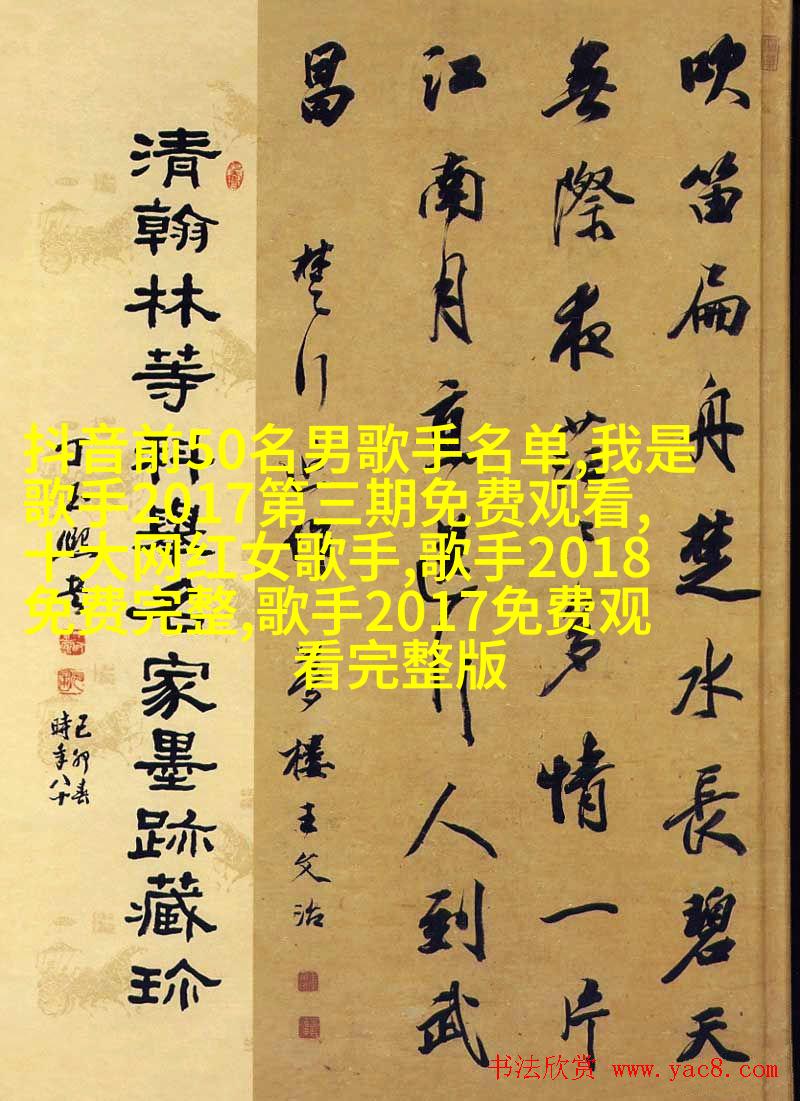 吹笛扁舟楚水長碧天
無際夜多情一片
江南月行人到武
昌
楚行
夢樓王文治
清翰林等科舉名家墨跡藏珍
石熙書
己卯春
時年八十
抖音前50名男歌手名单,我是
歌手2017第三期免费观看,
十大网红女歌手,歌手2018
免费完整,歌手2017免费观
看完整版
书法欣赏 www.yac8.com